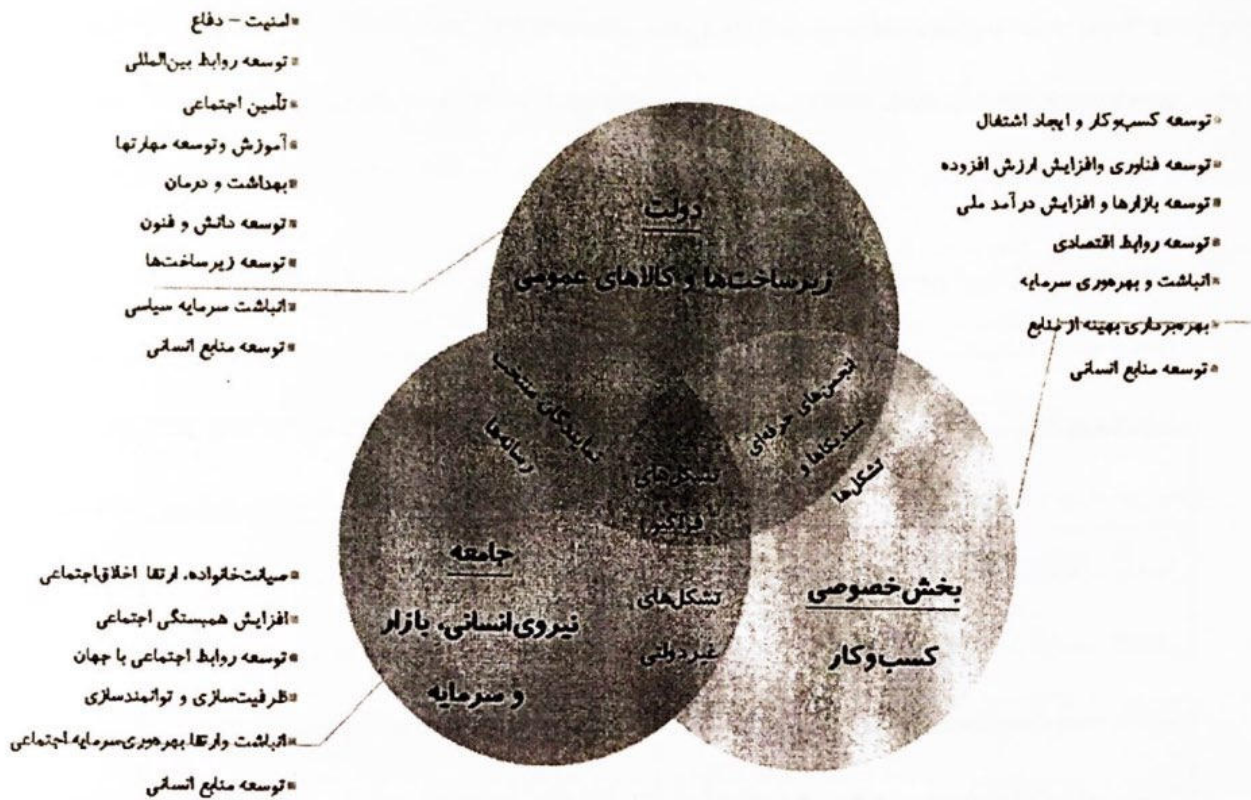 ▪امنیت – دفاع
▪توسعه روابط بین‌المللی
▪تأمین اجتماعی
▪آموزش وتوسعه مهارتها
▪بهداشت و درمان
▪توسعه دانش و فنون
▪توسعه زیرساخت‌ها
▪انباشت سرمایه سیاسی
▪توسعه منابع انسانی
▪توسعه کسب‌وکار و ایجاد اشتغال
▪توسعه فناوری وافزایش ارزش افزوده
▪توسعه بازارها و افزایش درآمد ملی
▪توسعه روابط اقتصادی
▪انباشت و بهره‌وری سرمایه
▪بهره‌برداری بهینه از منابع
▪توسعه منابع انسانی
دولت
زیرساخت‌ها و کالاهای عمومی
نمایندگان منتخب
رسانه‌ها
انجمن‌های حرفه‌ای
سندیکاها و
تشکل‌ها
تشکل‌های
فراگیر
جامعه
نیروی‌انسانی، بازار
و سرمایه
تشکل‌های
غیردولتی
بخش‌خصوصی
کسب‌وکار
▪صیانت‌خانواده، ارتقا اخلاق‌اجتماعی
▪افزایش همبستگی اجتماعی
▪توسعه روابط اجتماعی با جهان
▪ظرفیت‌سازی و توانمندسازی
▪انباشت وارتقا بهره‌وری‌سرمایه‌اجتماعی
▪توسعه منابع انسانی